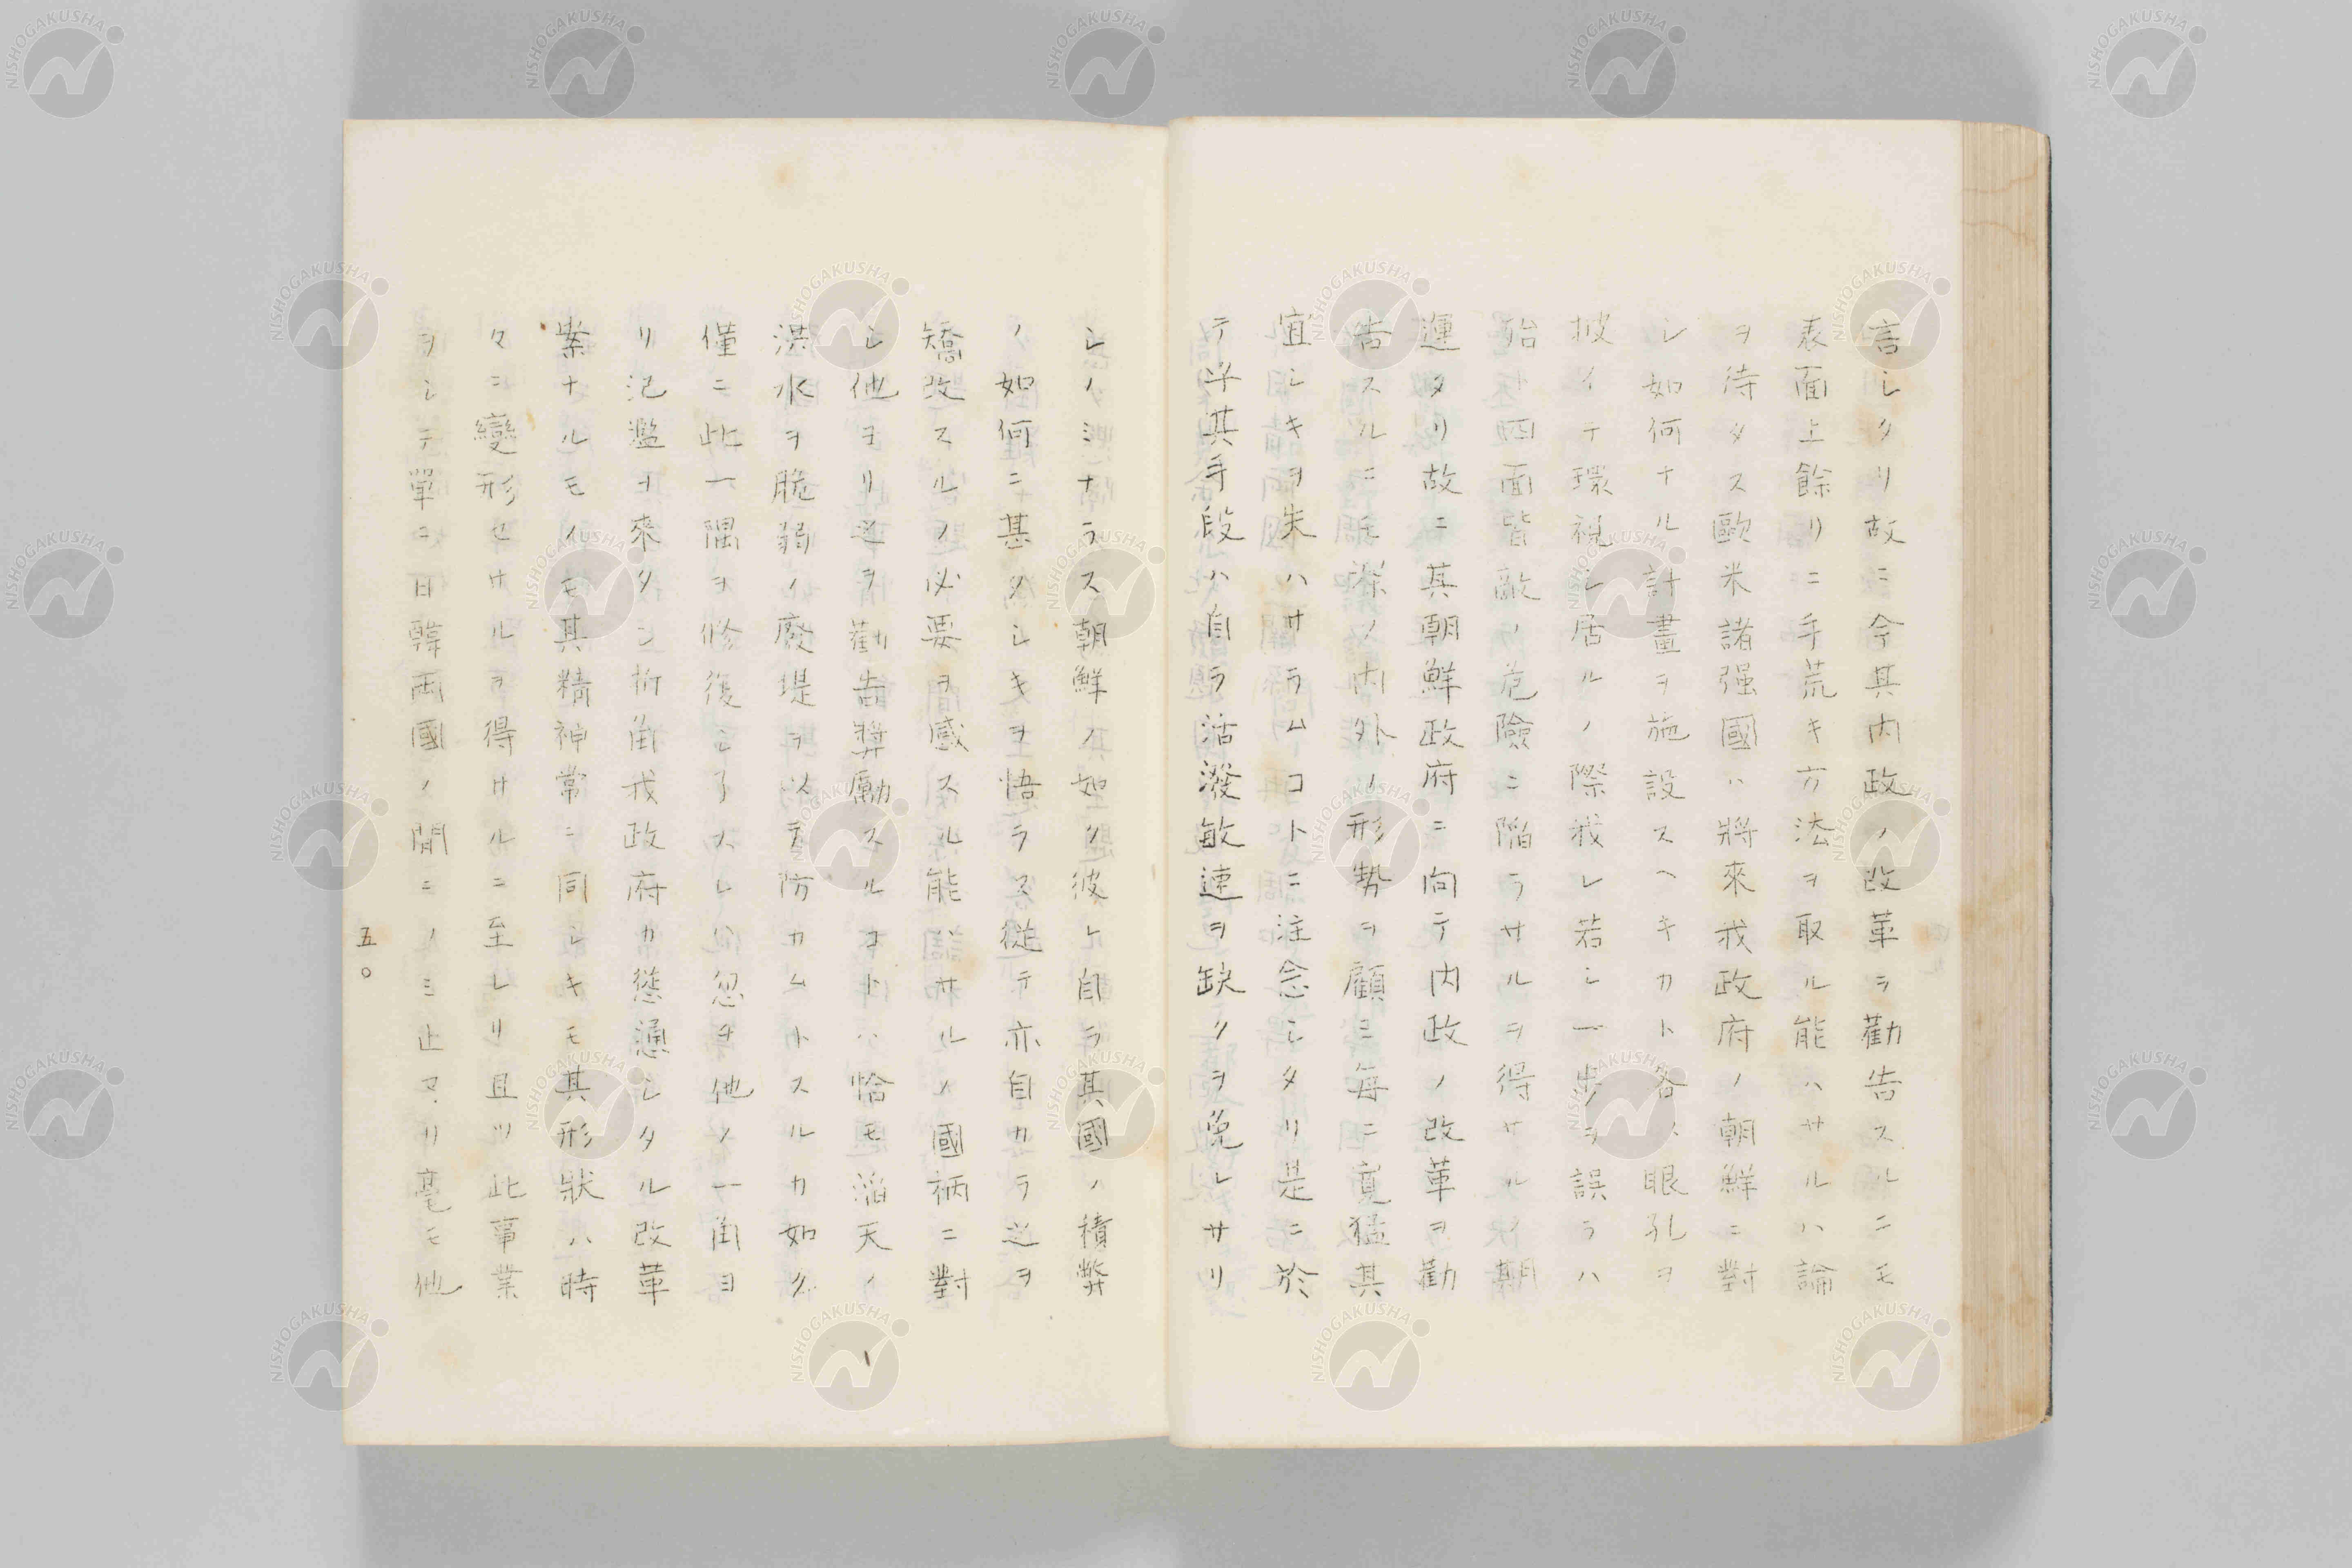 言シタリ故ニ今其内政ノ改革ヲ勸告スルニモ
表面上餘リニ手荒キ方法ヲ取ル能ハサルハ論
ヲ待タス歐米諸强國ハ將來我政府ノ朝鮮ニ對
シ如何ナル計畫ヲ施設スヘキカト各ス眼孔ヲ
披イテ環視シ居ルノ際我レ若シ一歩ヲ誤ラハ
殆ト四面皆敵ノ危險ニ陷ラサルヲ得サルノ期
運タリ故ニ其朝鮮政府ニ向テ内政ノ改革ヲ勸
告スルニモ深ク内外ノ形勢ヲ顧ミ每ニ寬猛其
宜シキヲ失ハサラムコトニ注念シタリ是ニ於
テ乎其手段ハ自ラ活潑敏速ヲ缺クヲ免レサリ
シノミナラス朝鮮ノ如ク彼レ自ラ其國ノ積弊
ノ如何ニ甚タシキヲ悟ラス從テ亦自カラ之ヲ
矯改スルノ必要ヲ感スル能ハサルノ國柄ニ對
シ他ヨリ之ヲ勸告獎勵スルコトハ恰モ滔天ノ
洪水ヲ脆弱ノ廢堤ヲ以テ防カムトスルカ如ク
僅ニ此一隅ヲ修復シ了スレハ忽チ他ノ一角ヨ
リ氾濫ヲ來タシ折角我政府カ慫慂シタル改革
案ナルモノモ其精神常ニ同シキモ其形狀ハ時
々ニ變形セサルヲ得サルニ至レリ且ツ此事業
ヲシテ單ニ日韓兩國ノ間ニノミ止マリ毫モ他
五〇
NISHOGAKUSHA